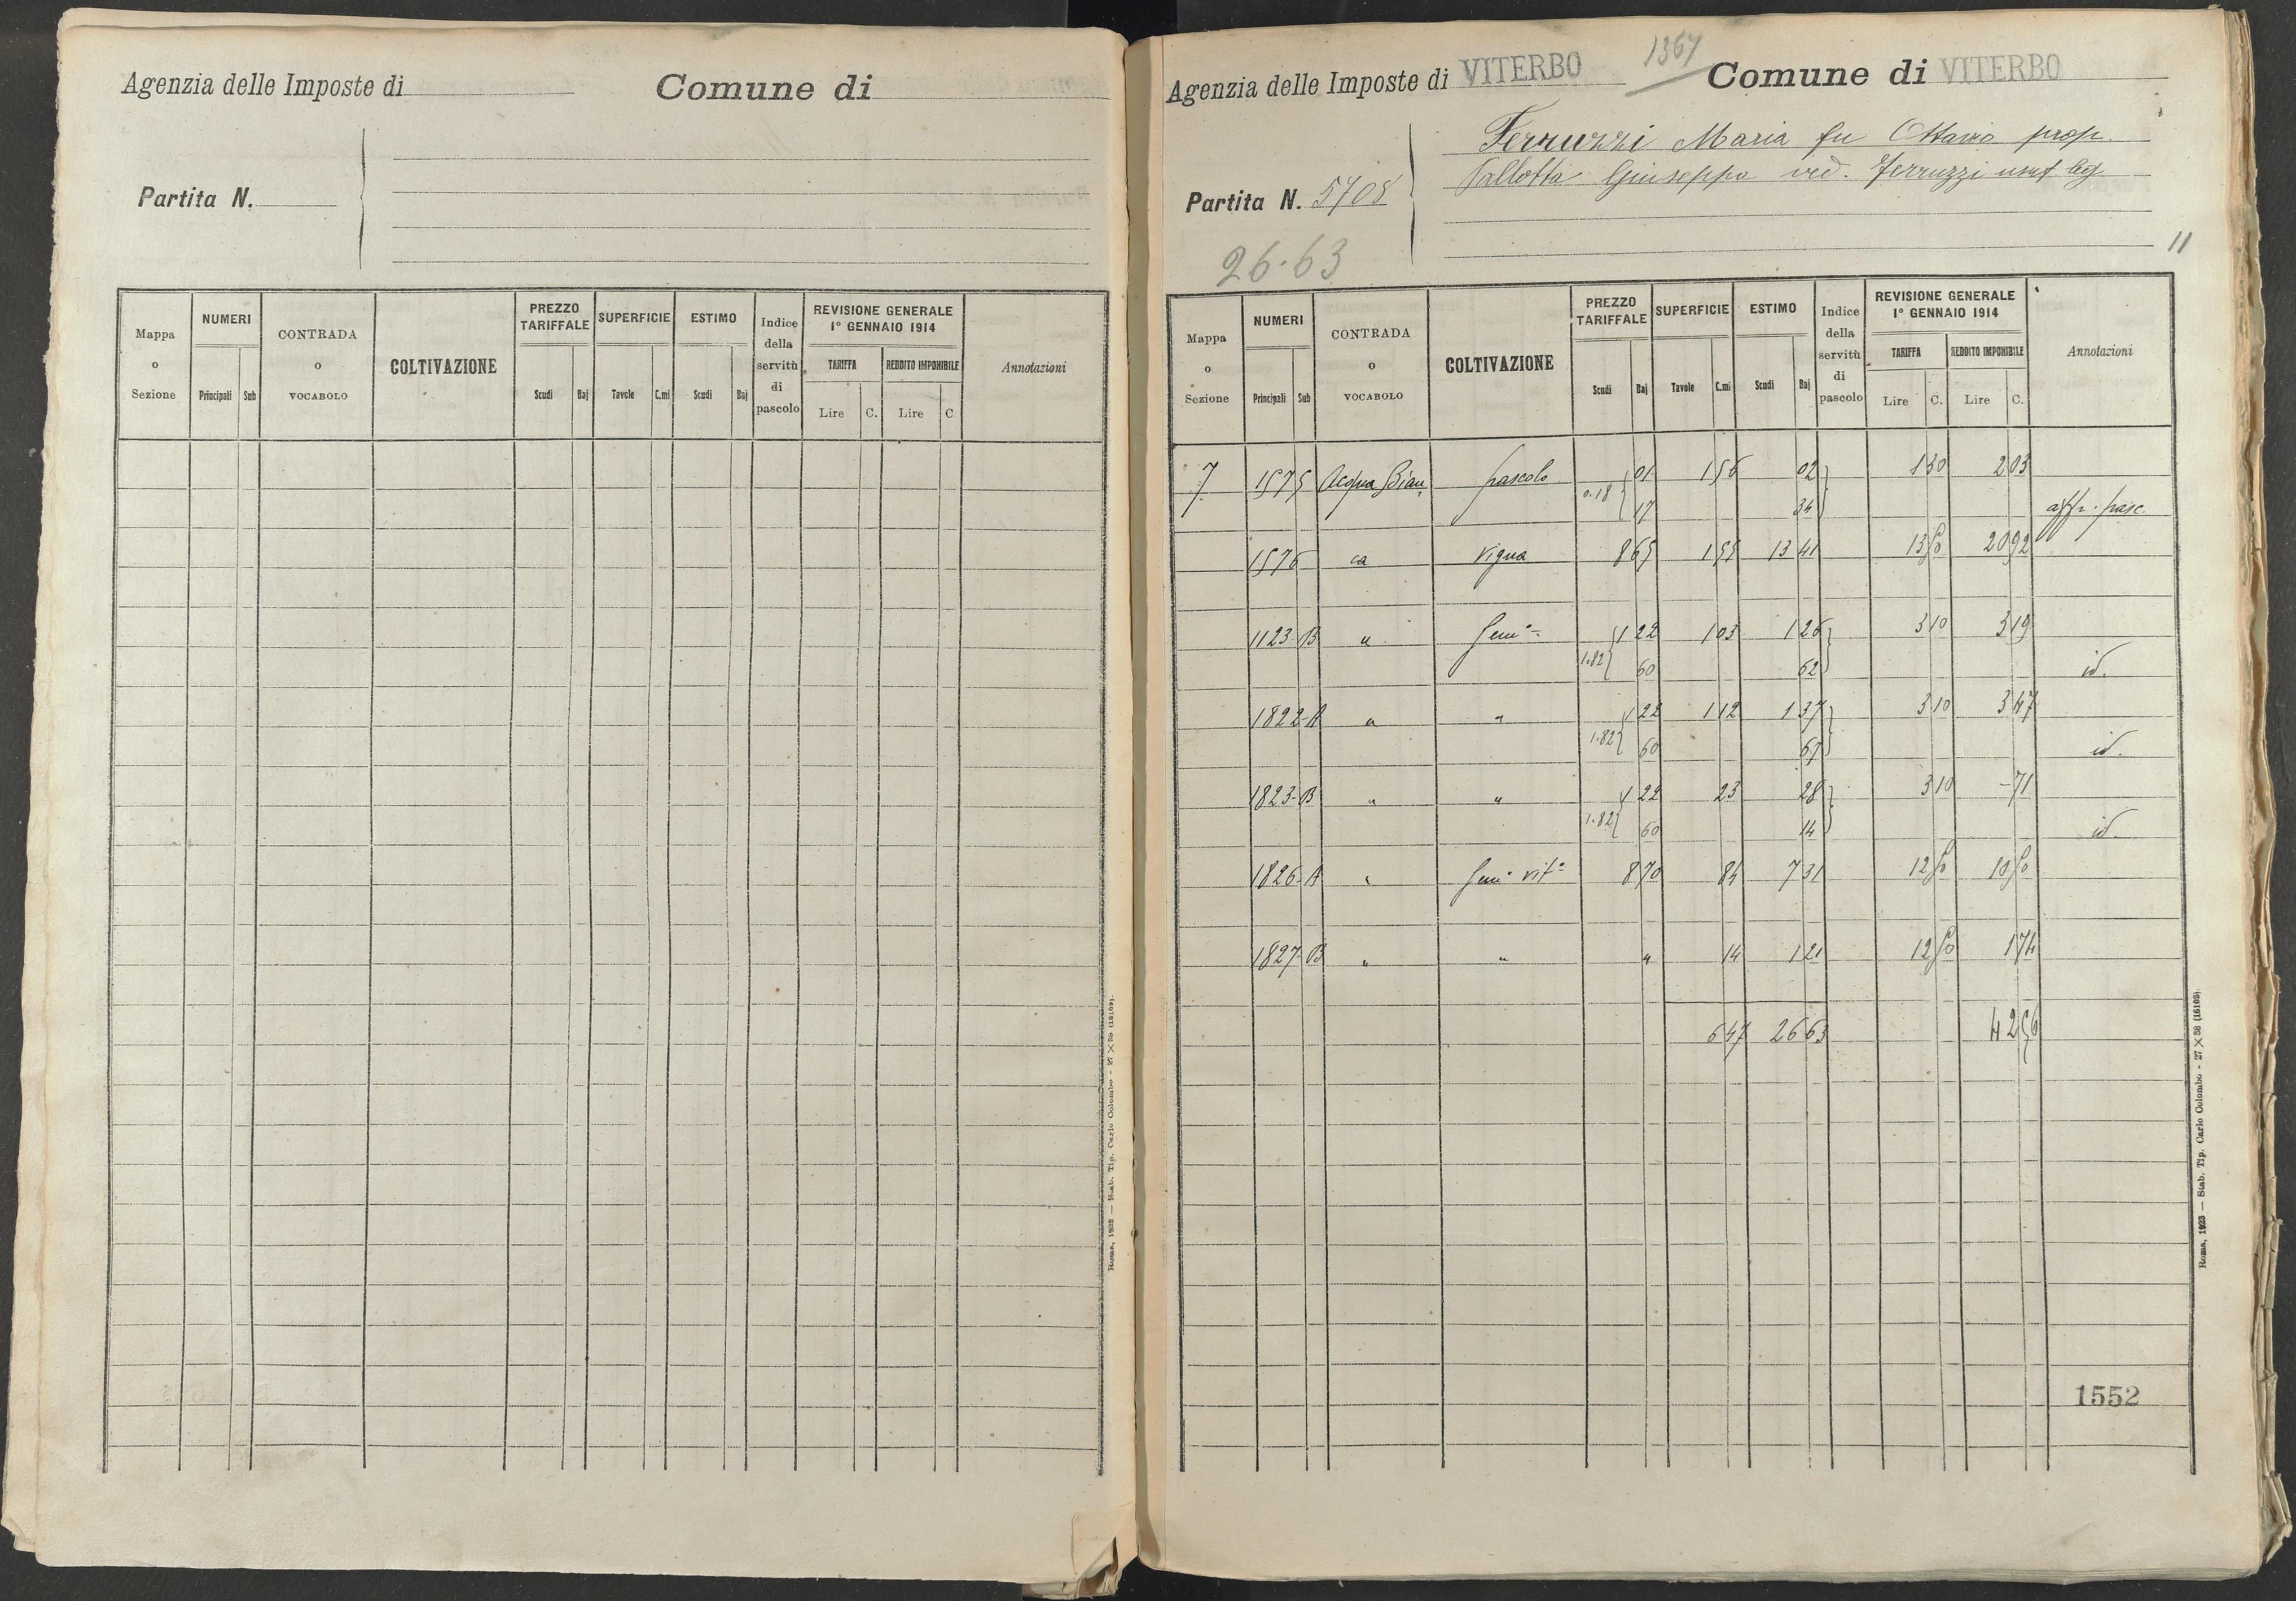 Agenzia delle Imposte di
Comune di
Partita N.
Mappa o Sezione
NUMERI
Principali Sub
CONTRADA o VOCABOLO
COLTIVAZIONE
PREZZO TARIFFALE
Scudi Baj
SUPERFICIE
Tavole C.mi
ESTIMO
Scudi Baj
Indice della servitù di pascolo
REVISIONE GENERALE
1° GENNAIO 1914
TARIFFA
Lire C.
REDDITO IMPONIBILE
Lire C
Annotazioni
Roma, 1923 — Stab. Tip. Carlo Colombo - 27 × 38 (15105).
Agenzia delle Imposte di VITERBO
1367
Comune di VITERBO
Ferruzzi Maria fu Ottavio prop.
Pallotta Giuseppa ved. Ferruzzi usuf leg
Partita N. 5708
26.63
11
Mappa o Sezione
NUMERI
Principali Sub
CONTRADA o VOCABOLO
COLTIVAZIONE
PREZZO TARIFFALE
Scudi Baj
SUPERFICIE
Tavole C.mi
ESTIMO
Scudi Baj
Indice della servitù di pascolo
REVISIONE GENERALE
1° GENNAIO 1914
TARIFFA
Lire C.
REDDITO IMPONIBILE
Lire C.
Annotazioni
7 1575 Acqua Bian. pascolo 01 1 56 02 1 30 2 03
0.18 17 34 affr. pasc.
1576 ca vigna 8 65 1 55 13 41 13 50 20 92
1123 B " Sem° 1 22 1 03 1 26 3 10 3 19
1.82 60 62 id.
1822 A " " 1 22 1 12 1 37 3 10 3 47
1.82 60 67 id.
1823 B " " 1 22 23 28 3 10 - 71
1.82 60 14 id.
1826 A " Sem° vit° 8 70 84 7 31 12 50 10 50
1827 B " " " 14 1 21 12 50 1 74
6 47 26 63 42 56
1552
Roma, 1923 — Stab. Tip. Carlo Colombo - 27 × 38 (15105).